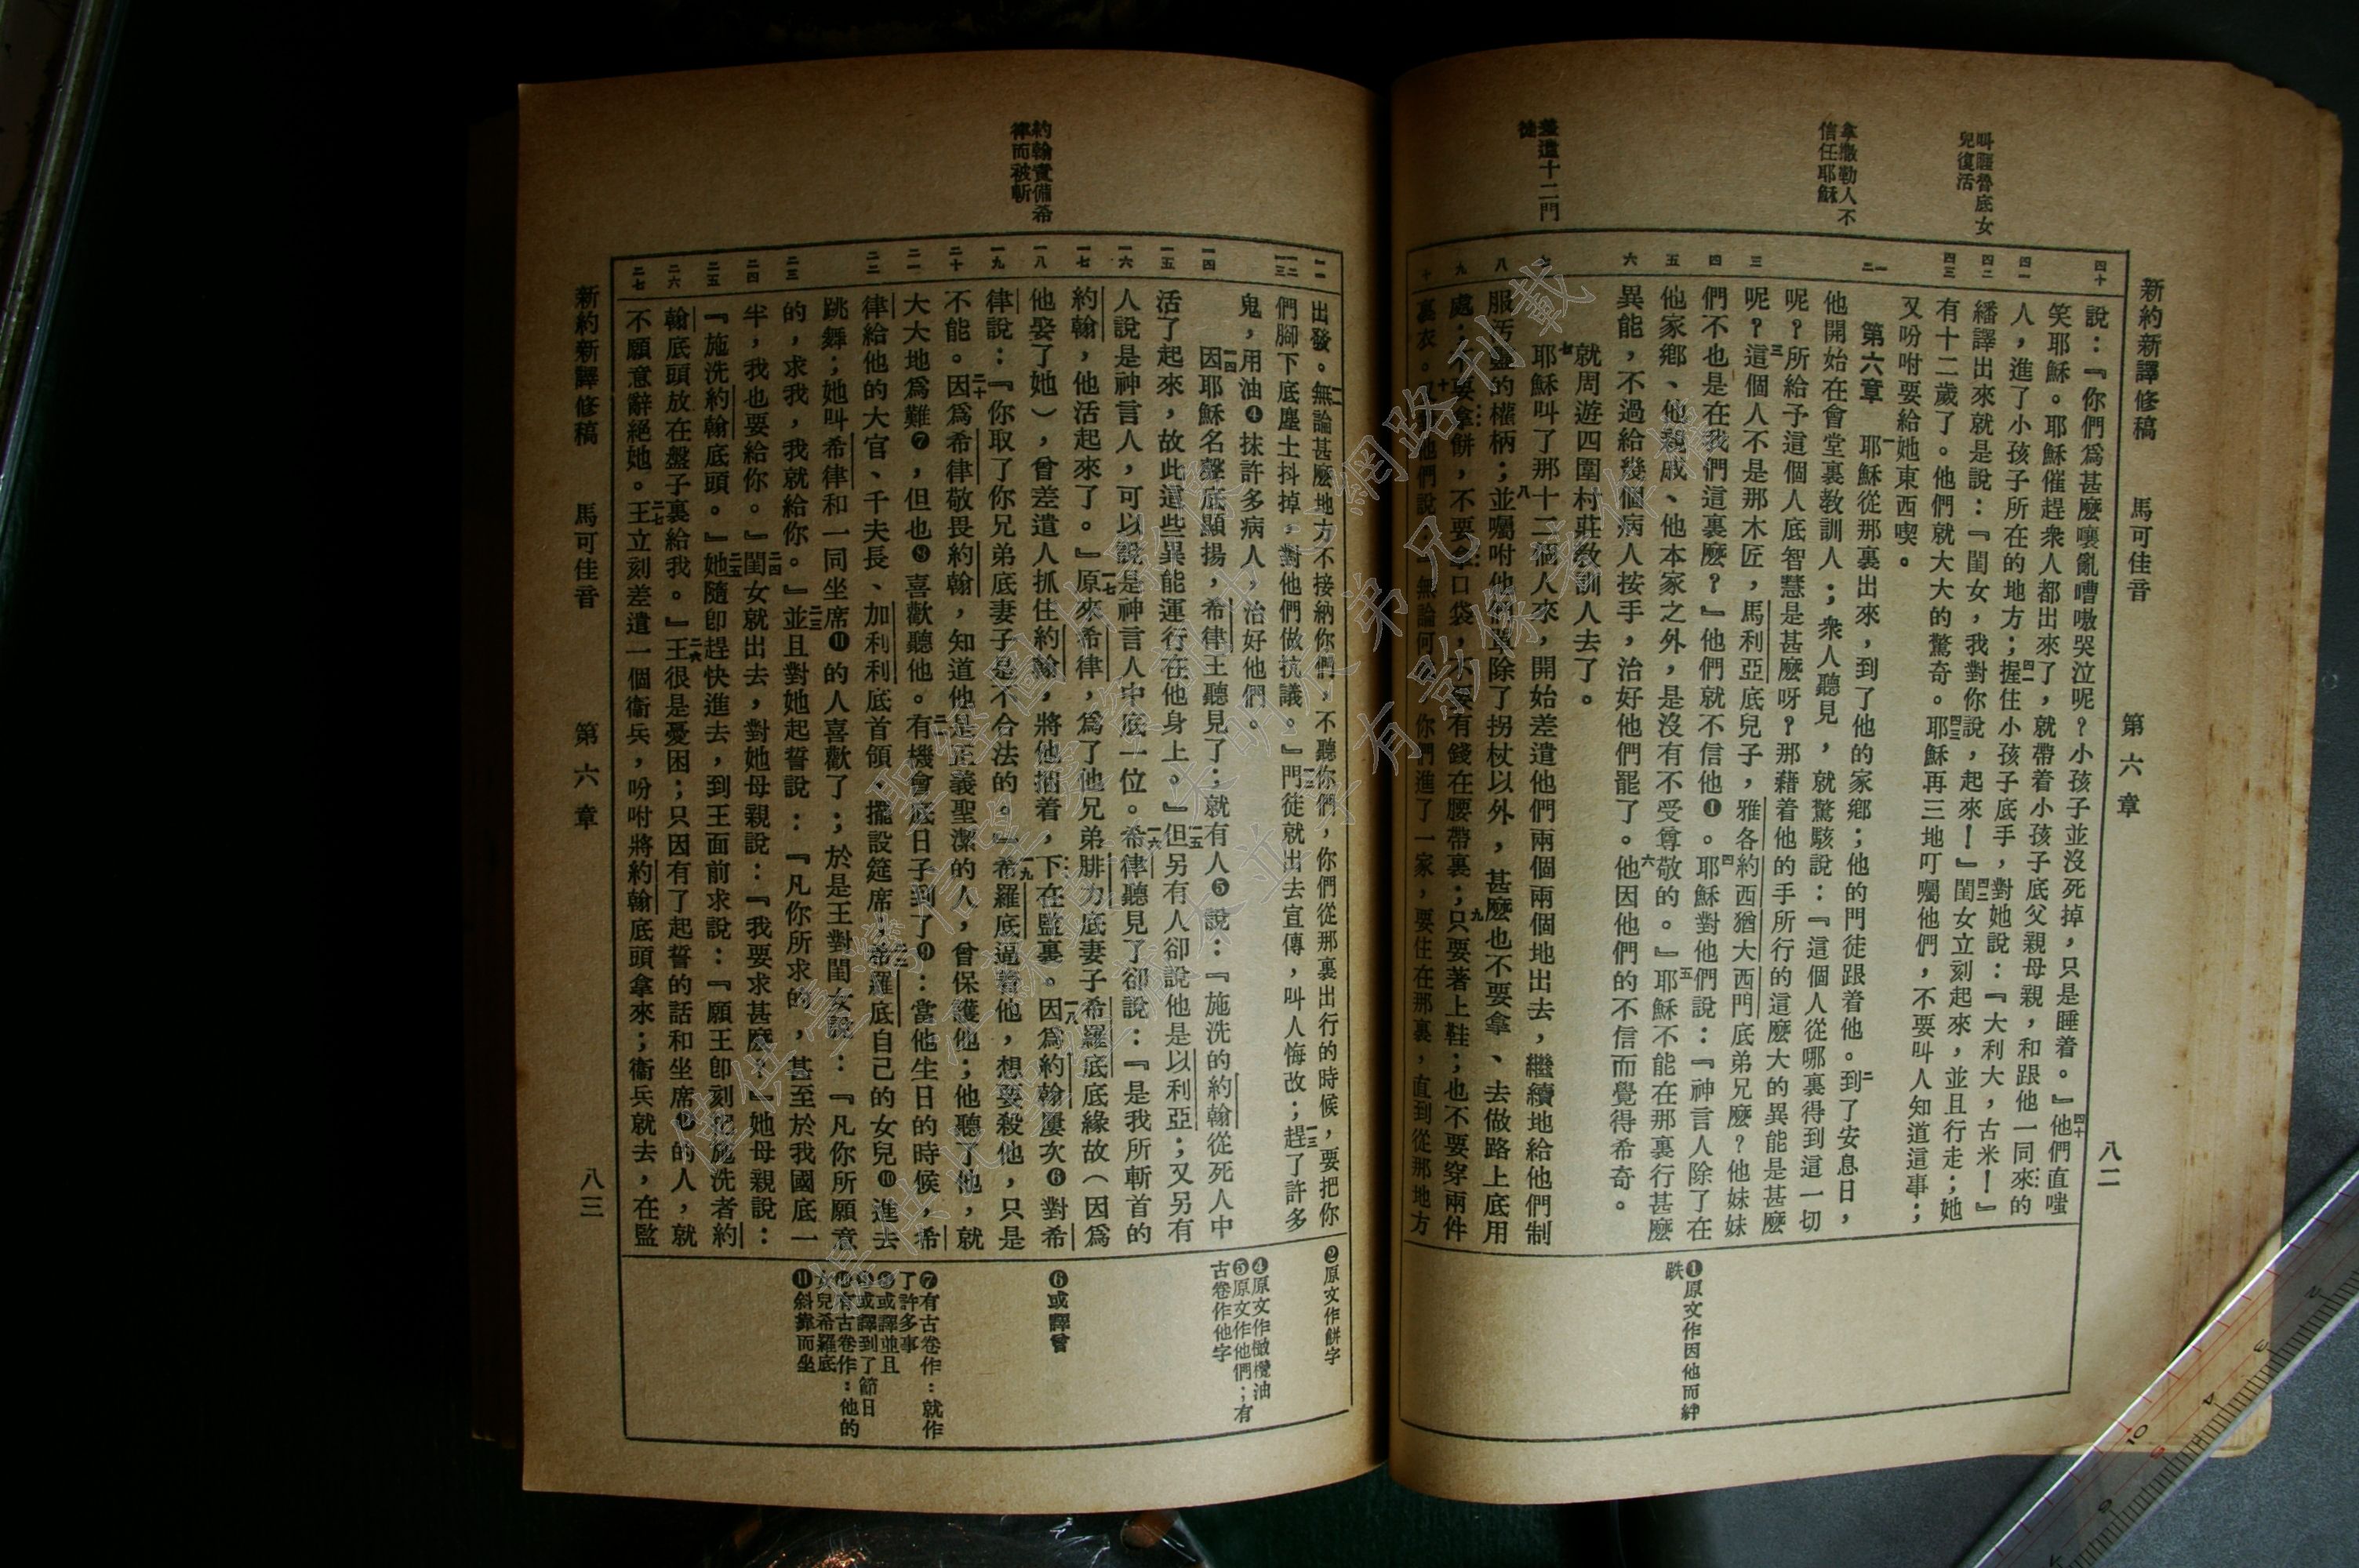 新約新譯修稿　馬可佳音　第六章　八二
叫睚魯底女
兒復活
拿撒勒人不
信任耶穌
差遣十二門
徒
四十
四一
四二
四三
一
二
三
四
五
六
七
八
九
十
說：『你們爲甚麼嚷亂嘈嗷哭泣呢？小孩子並沒死掉，只是睡着。』四十他們直嗤
笑耶穌。耶穌催趕衆人都出來了，就帶着小孩子底父親母親，和跟他一同來的
人，進了小孩子所在的地方；四一握住小孩子底手，對她說：『大利大，古米！』
繙譯出來就是說：『閨女，我對你說，起來！』四二閨女立刻起來，並且行走；她
有十二歲了。他們就大大的驚奇。四三耶穌再三地叮囑他們，不要叫人知道這事；
又吩咐要給她東西喫。
第六章　一耶穌從那裏出來，到了他的家鄉；他的門徒跟着他。二到了安息日，
他開始在會堂裏教訓人；衆人聽見，就驚駭說：『這個人從哪裏得到這一切
呢？所給予這個人底智慧是甚麼呀？那藉着他的手所行的這麼大的異能是甚麼
呢？三這個人不是那木匠，馬利亞底兒子，雅各約西猶大西門底弟兄麼？他妹妹
們不也是在我們這裏麼？』他們就不信他❶。四耶穌對他們說：『神言人除了在
他家鄉、他親戚、他本家之外，是沒有不受尊敬的。』五耶穌不能在那裏行甚麼
異能，不過給幾個病人按手，治好他們罷了。六他因他們的不信而覺得希奇。
就周遊四圍村莊教訓人去了。
七耶穌叫了那十二個人來，開始差遣他們兩個兩個地出去，繼續地給他們制
服汚靈的權柄；八並囑咐他們說除了拐杖以外，甚麼也不要拿、去做路上底用
處；不要拿餅，不要口袋，不要有錢在腰帶裏；九只要著上鞋；也不要穿兩件
裏衣。十又對他們說：『無論何處，你們進了一家，要住在那裏，直到從那地方
❶原文作因他而絆
跌
約翰責備希
律而被斬
一一
一二
一三
一四
一五
一六
一七
一八
一九
二十
二一
二二
二三
二四
二五
二六
二七
出發。一一無論甚麼地方不接納你們，不聽你們，你們從那裏出行的時候，要把你
們腳下底塵土抖掉，對他們做抗議。』一二門徒就出去宣傳，叫人悔改；一三趕了許多
鬼，用油❹抹許多病人，治好他們。
一四因耶穌名聲底顯揚，希律王聽見了；就有人❺說：『施洗的約翰從死人中
活了起來，故此這些異能運行在他身上。』一五但另有人卻說他是以利亞；又另有
人說是神言人，可以說是神言人中底一位。一六希律聽見了卻說：『是我所斬首的
約翰，他活起來了。』一七原來希律，爲了他兄弟腓力底妻子希羅底底緣故（因爲
他娶了她），曾差遣人抓住約翰，將他捆着，下在監裏。一八因爲約翰屢次❻對希
律說：『你取了你兄弟底妻子是不合法的。』一九希羅底逼著他，想要殺他，只是
不能。二十因爲希律敬畏約翰，知道他是正義聖潔的人，曾保護他；他聽了他，就
大大地爲難❼，但也❽喜歡聽他。二一有機會底日子到了❾：當他生日的時候，希
律給他的大官、千夫長、加利利底首領、擺設筵席，二二希羅底自己的女兒❿進去
跳舞；她叫希律和一同坐席⓫的人喜歡了；於是王對閨女說：『凡你所願意
的，求我，我就給你。』二三並且對她起誓說：『凡你所求的，甚至於我國底一
半，我也要給你。』二四閨女就出去，對她母親說：『我要求甚麼？』她母親說：
『施洗約翰底頭。』二五她隨卽趕快進去，到王面前求說：『願王卽刻把施洗者約
翰底頭放在盤子裏給我。』二六王很是憂困；只因有了起誓的話和坐席⓫的人，就
不願意辭絕她。二七王立刻差遣一個衞兵，吩咐將約翰底頭拿來；衞兵就去，在監
❷原文作餅字
❹原文作橄欖油
❺原文作他們；有
古卷作他字
❻或譯曾
❼有古卷作：就作
了許多事
❽或譯並且
❾或譯到了節日
❿有古卷作：他的
女兒希羅底
⓫斜靠而坐
新約新譯修稿　馬可佳音　第六章　八三